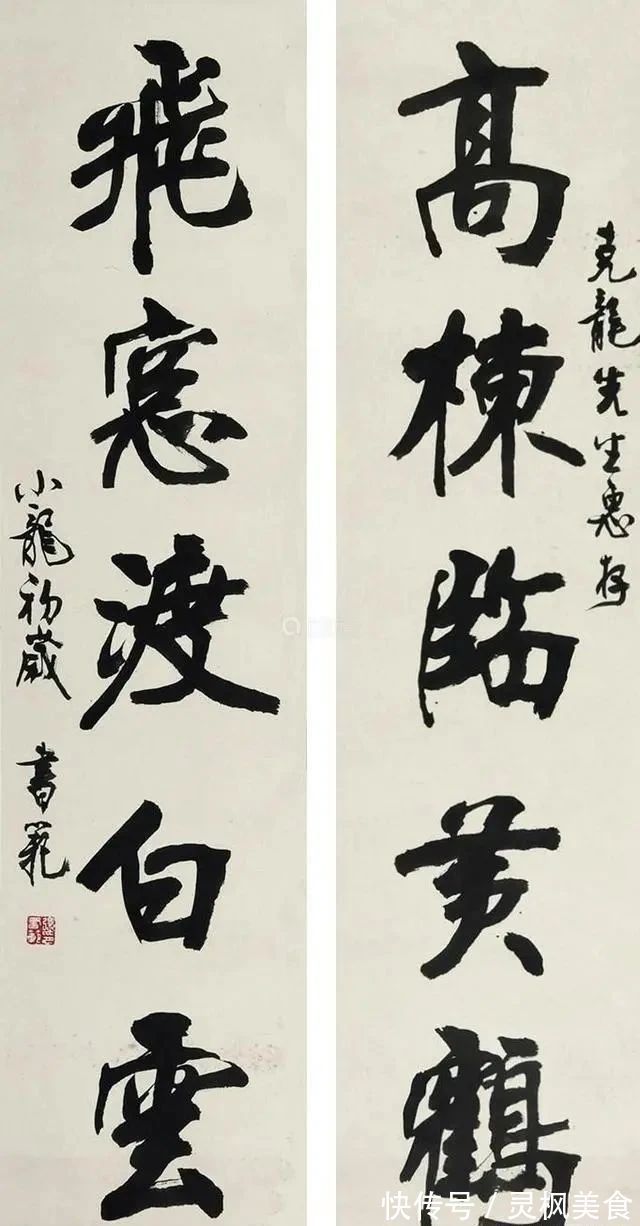 克龍先生惠存
高棟臨黄鶴
飛窓渡白雲
小龍初歲 書範
快传号／灵枫美食